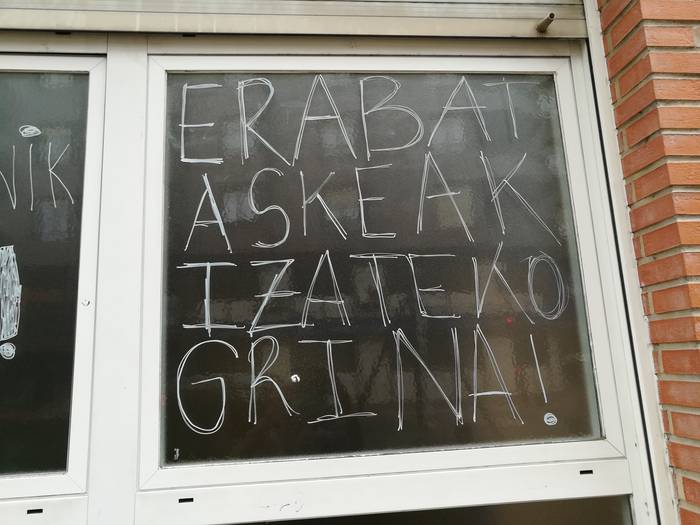 NIK
!
ERABAT
ASKEAK
IZATEKO
GRINA!